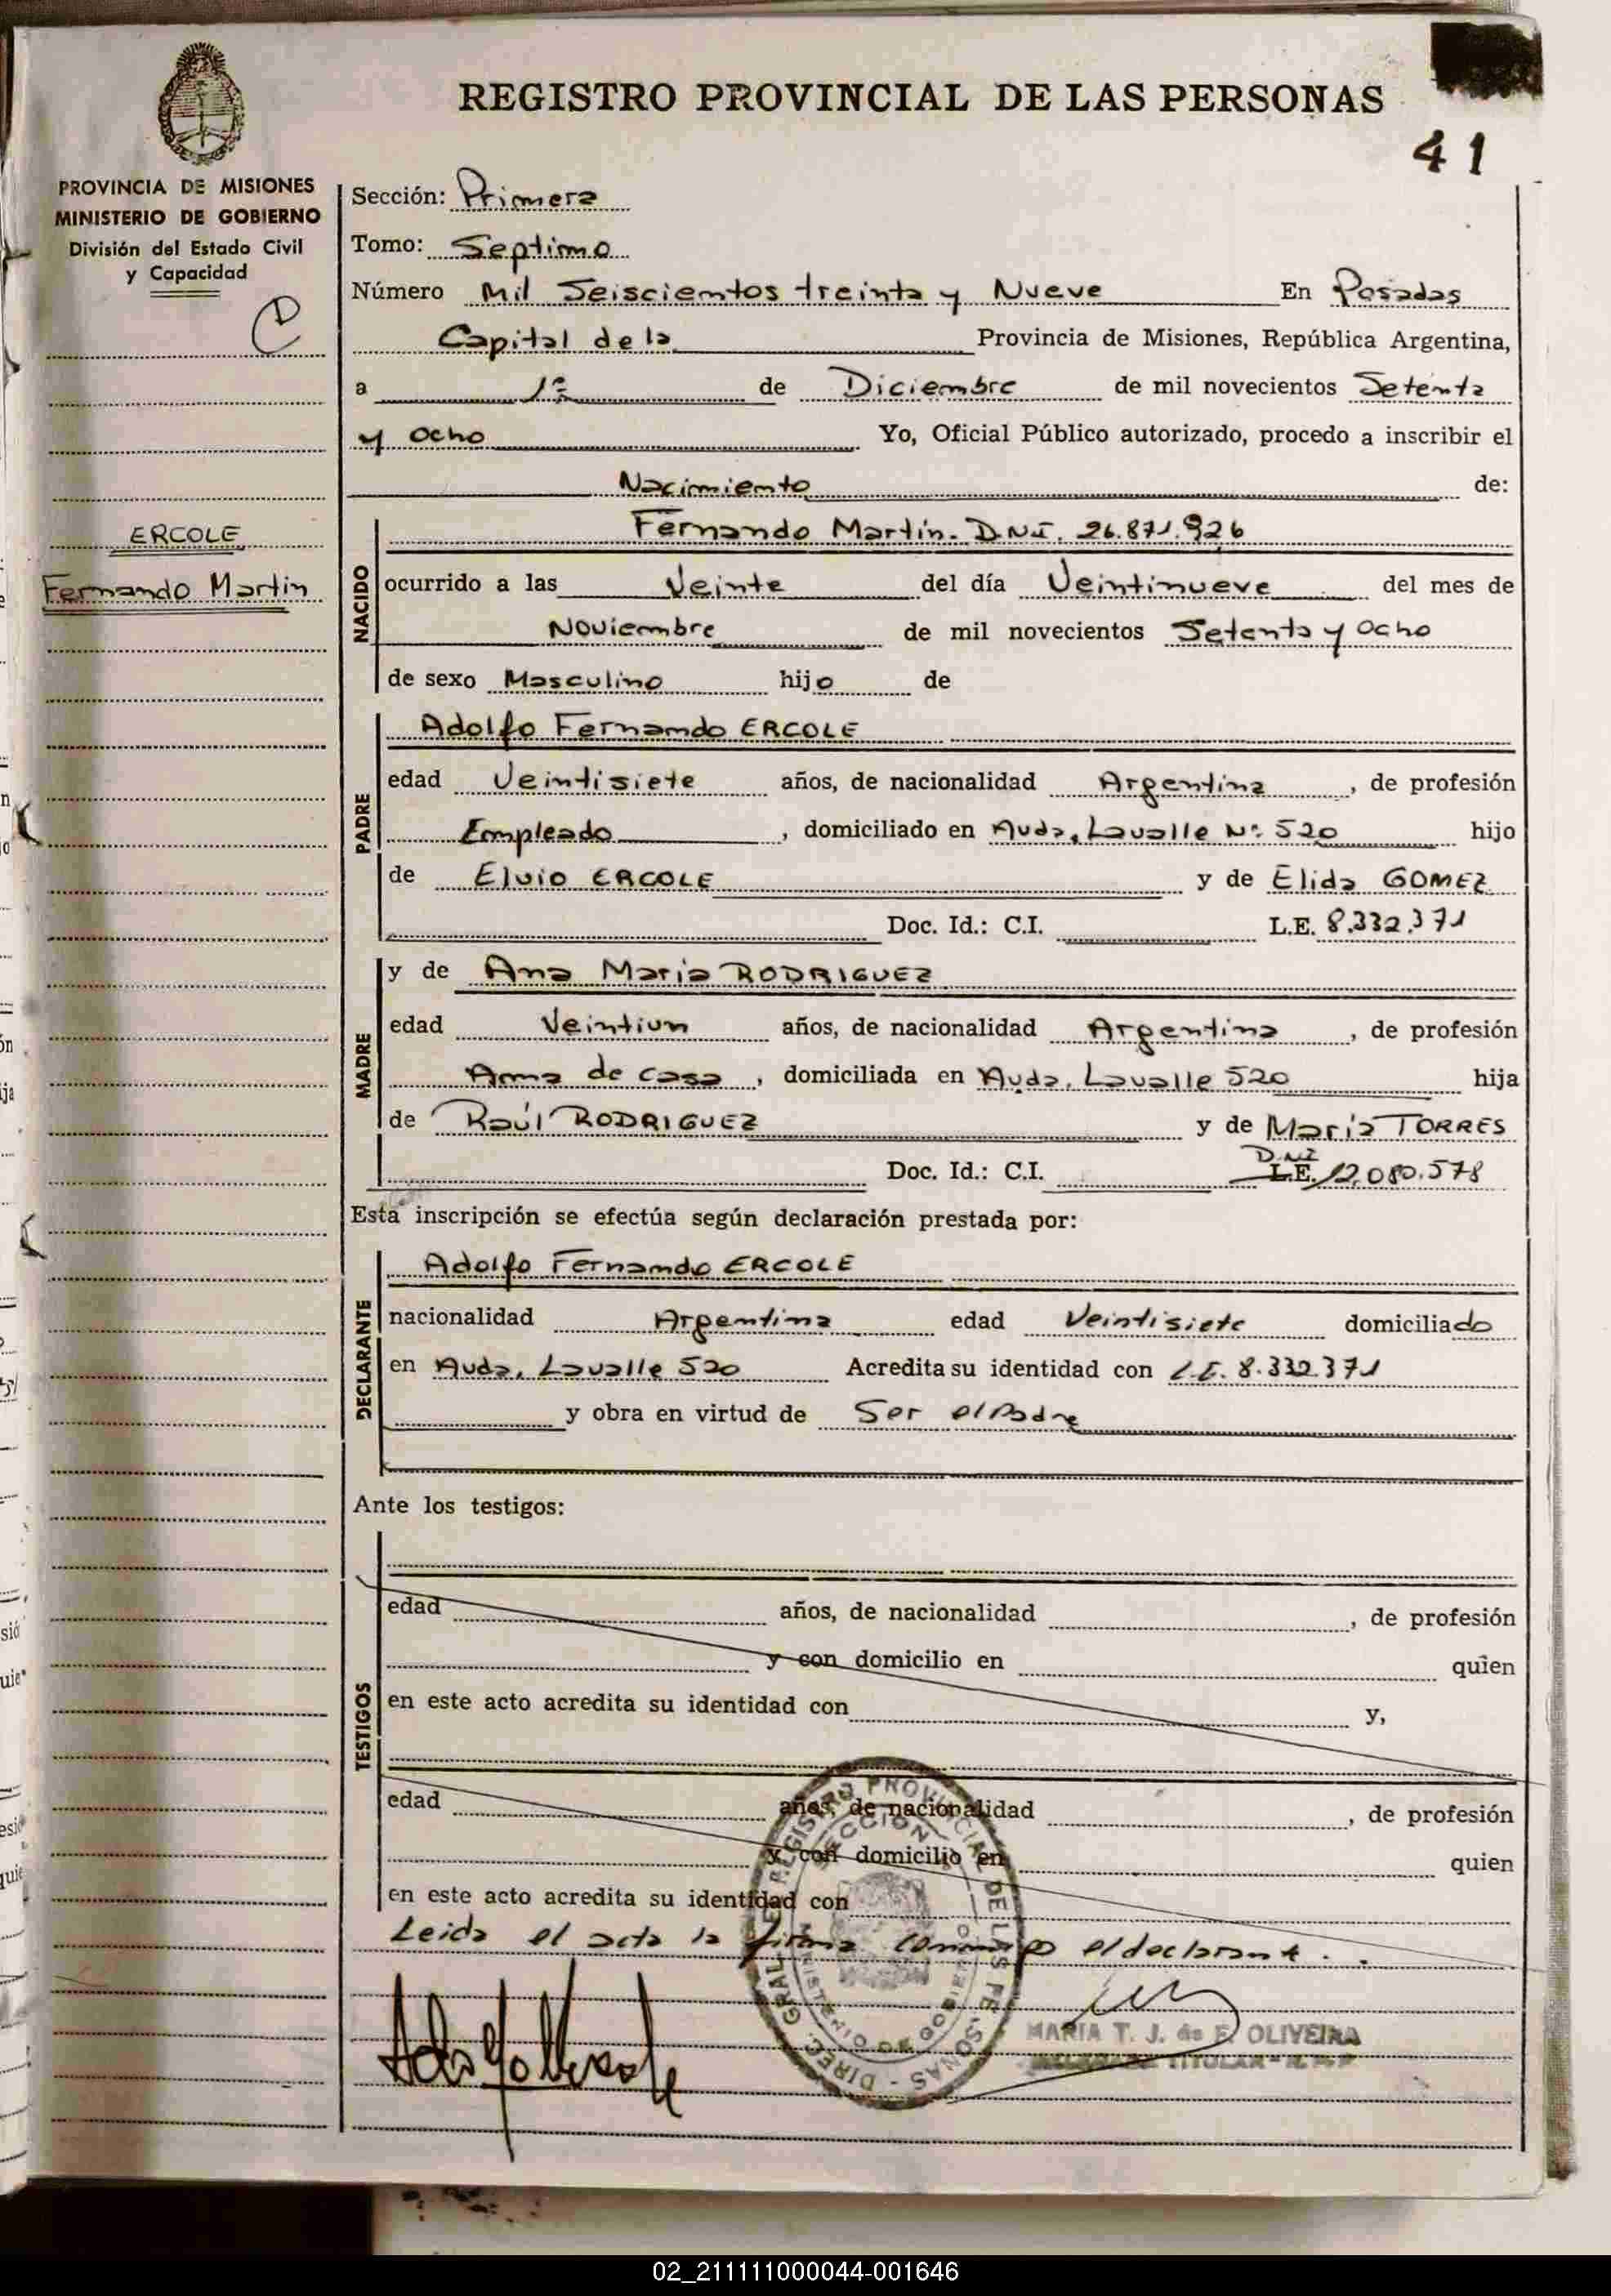 REGISTRO PROVINCIAL DE LAS PERSONAS
41
PROVINCIA DE MISIONES
MINISTERIO DE GOBIERNO
División del Estado Civil
y Capacidad
ERCOLE
Fernando Martin
Sección: Primera
Tomo: Septimo
Número Mil Seiscientos treinta y Nueve En Posadas
Capital de la Provincia de Misiones, República Argentina,
a 1º de Diciembre de mil novecientos Setenta
y ocho Yo, Oficial Público autorizado, procedo a inscribir el
Nacimiento de:
NACIDO
Fernando Martín. D.N.I. 26.871.926
ocurrido a las Veinte del día Veintinueve del mes de
Noviembre de mil novecientos Setenta y Ocho
de sexo Masculino hijo de
PADRE
Adolfo Fernando ERCOLE
edad Veintisiete años, de nacionalidad Argentina, de profesión
Empleado, domiciliado en Avda, Lavalle Nº 520 hijo
de Elvio ERCOLE y de Elida GOMEZ
Doc. Id.: C.I. L.E. 8.332.371
MADRE
y de Ana María RODRIGUEZ
edad Veintiun años, de nacionalidad Argentina, de profesión
Ama de casa, domiciliada en Avda, Lavalle 520 hija
de Raúl RODRIGUEZ y de María TORRES
D.N.I
Doc. Id.: C.I. L.E. 12.080.578
Esta inscripción se efectúa según declaración prestada por:
DECLARANTE
Adolfo Fernando ERCOLE
nacionalidad Argentina edad Veintisiete domiciliado
en Avda, Lavalle 520 Acredita su identidad con L.E. 8.332.371
y obra en virtud de Ser el Padre
Ante los testigos:
TESTIGOS
edad años, de nacionalidad , de profesión
y con domicilio en quien
en este acto acredita su identidad con y,
edad años, de nacionalidad , de profesión
y con domicilio en quien
en este acto acredita su identidad con
Leida el acta la firma conmigo el declarante.
DIREC. GRAL. DE REGISTRO PROVINCIAL DE LAS PERSONAS
SECCION
MINISTERIO DE GOBIERNO
MARIA T. J. de F. OLIVEIRA
TITULAR
02_211111000044-001646